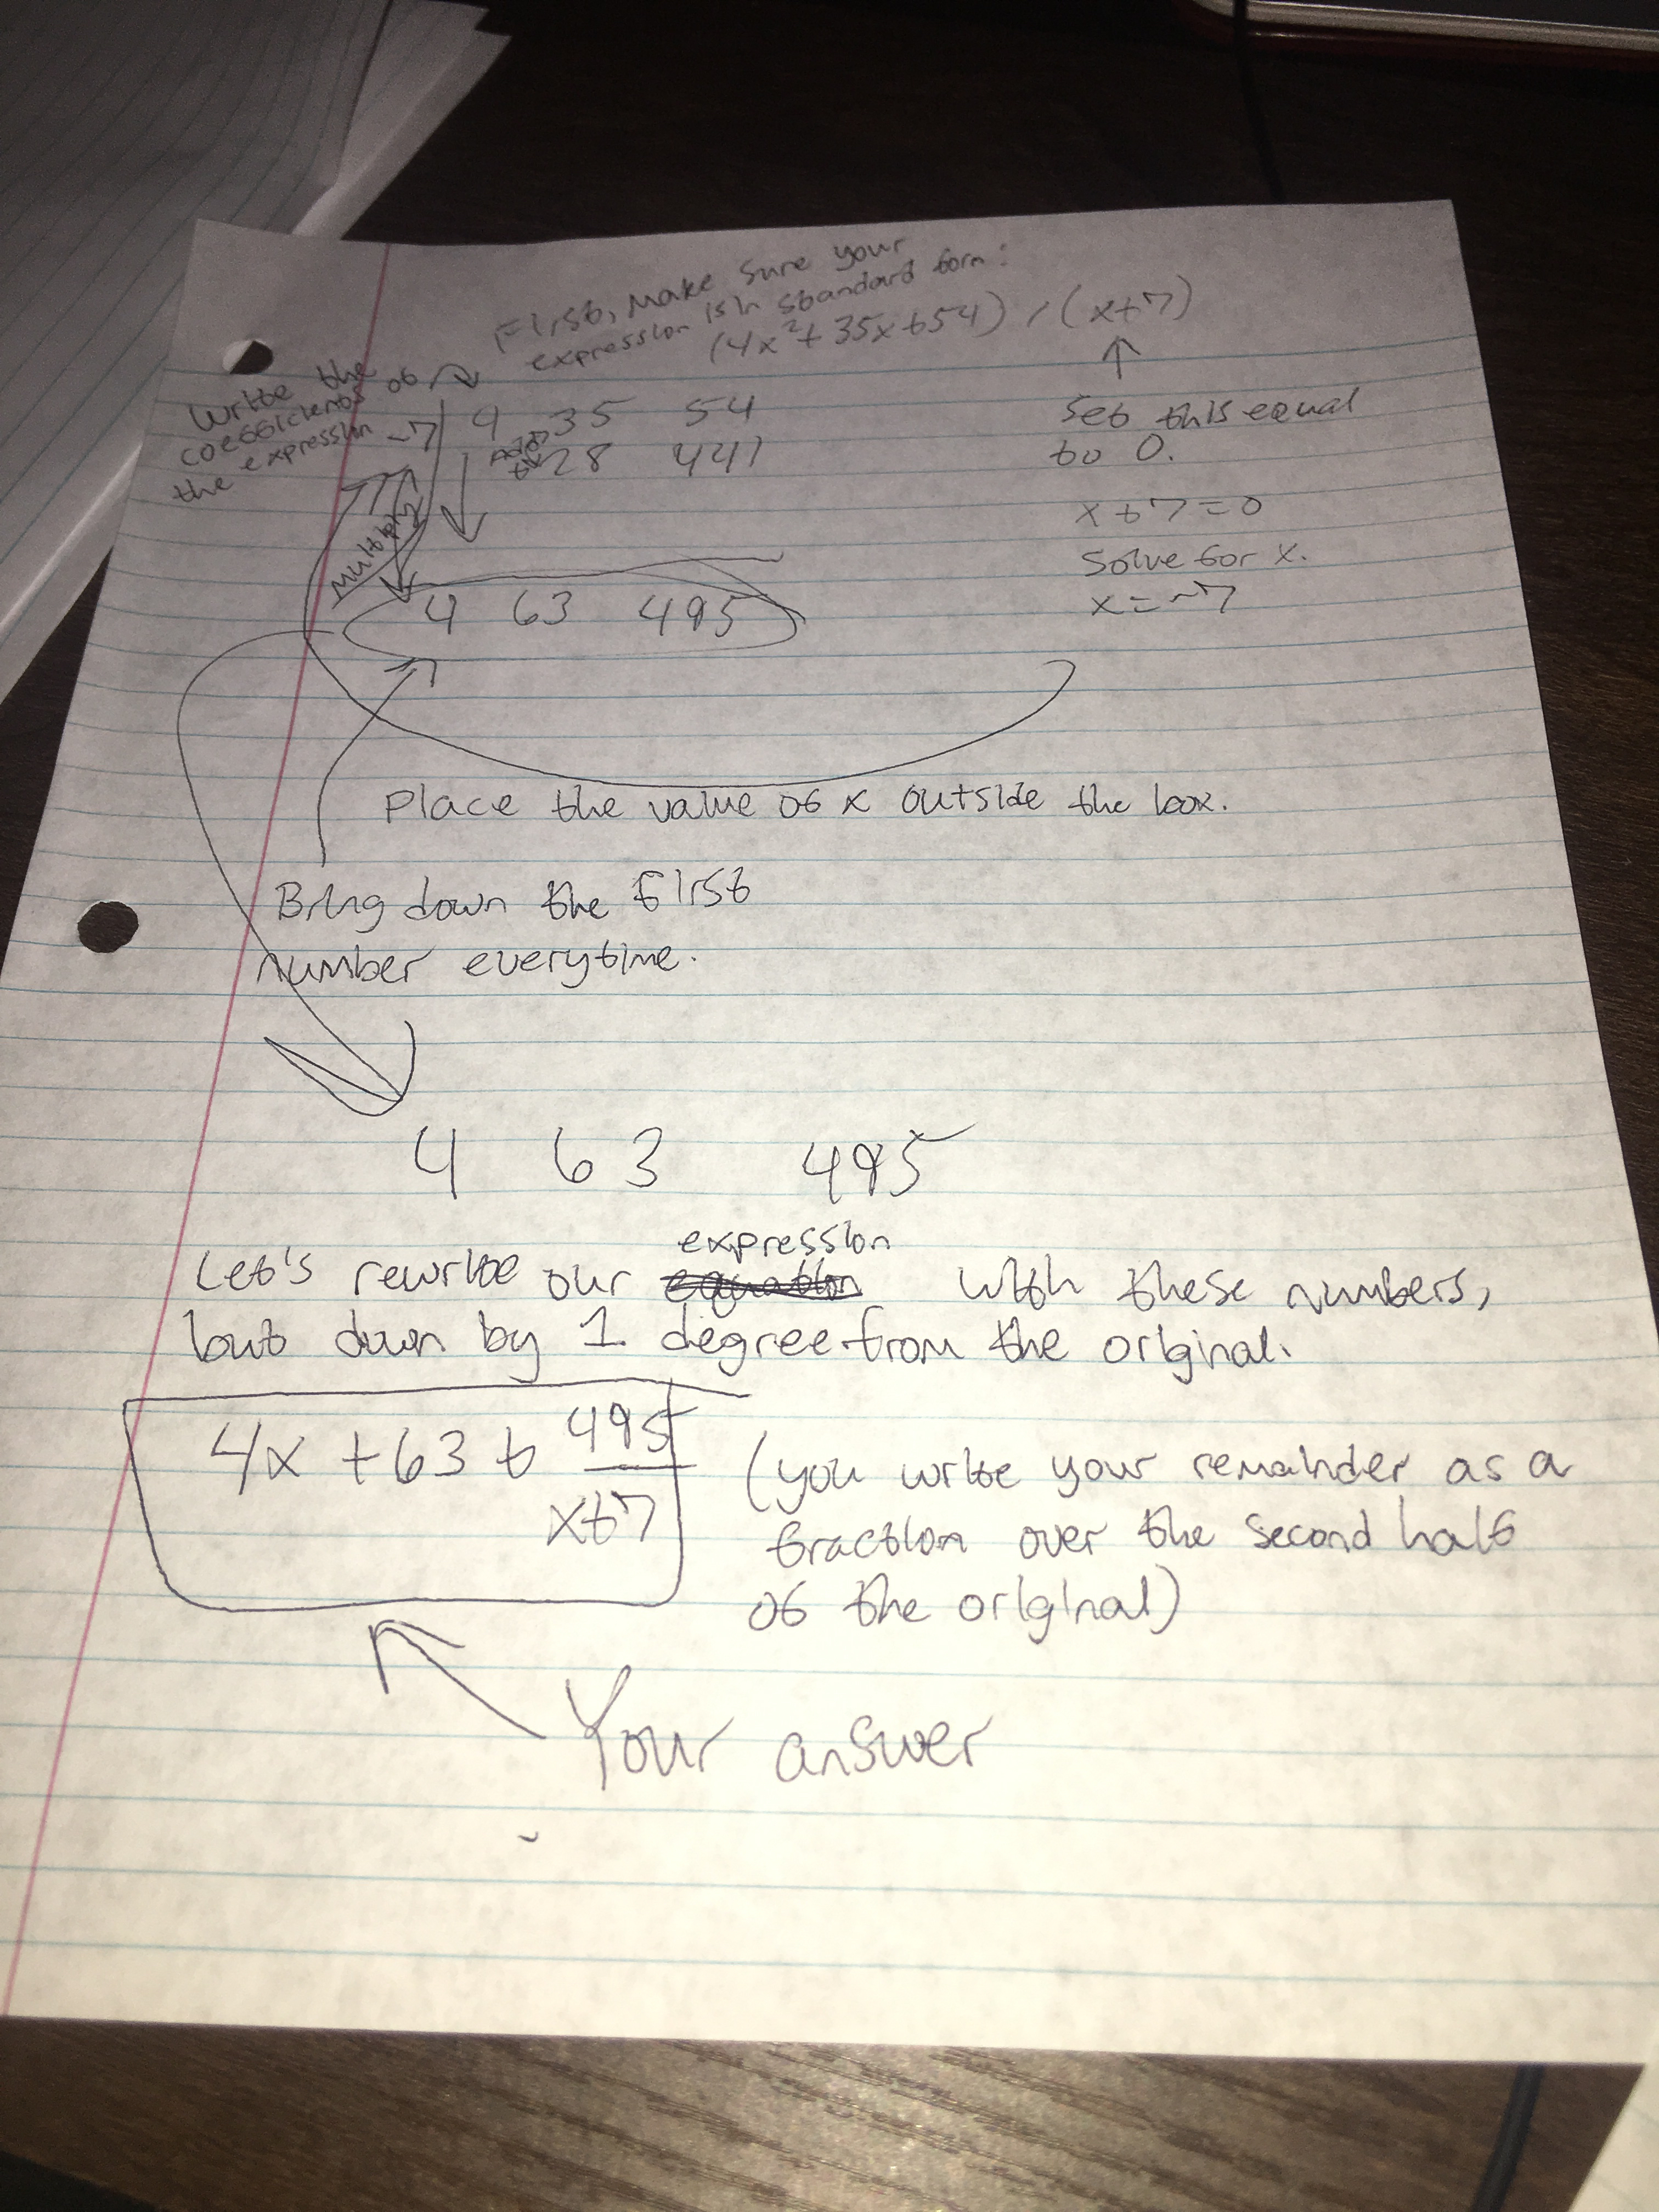 First, make sure your
expression is in standard form:
(4x²+35x+54) / (x+7)
Write the
coefficients of
the expression
-7 4 35 54
Add
28 441
Multiply
4 63 495
Set this equal
to 0.
x+7=0
Solve for x.
x=-7
Place the value of x outside the box.
Bring down the first
number everytime.
4 63 495
expression
Let's rewrite our equation with these numbers,
but down by 1 degree from the original.
4x +63 + 495
x+7
(you write your remainder as a
fraction over the second half
of the original)
Your answer